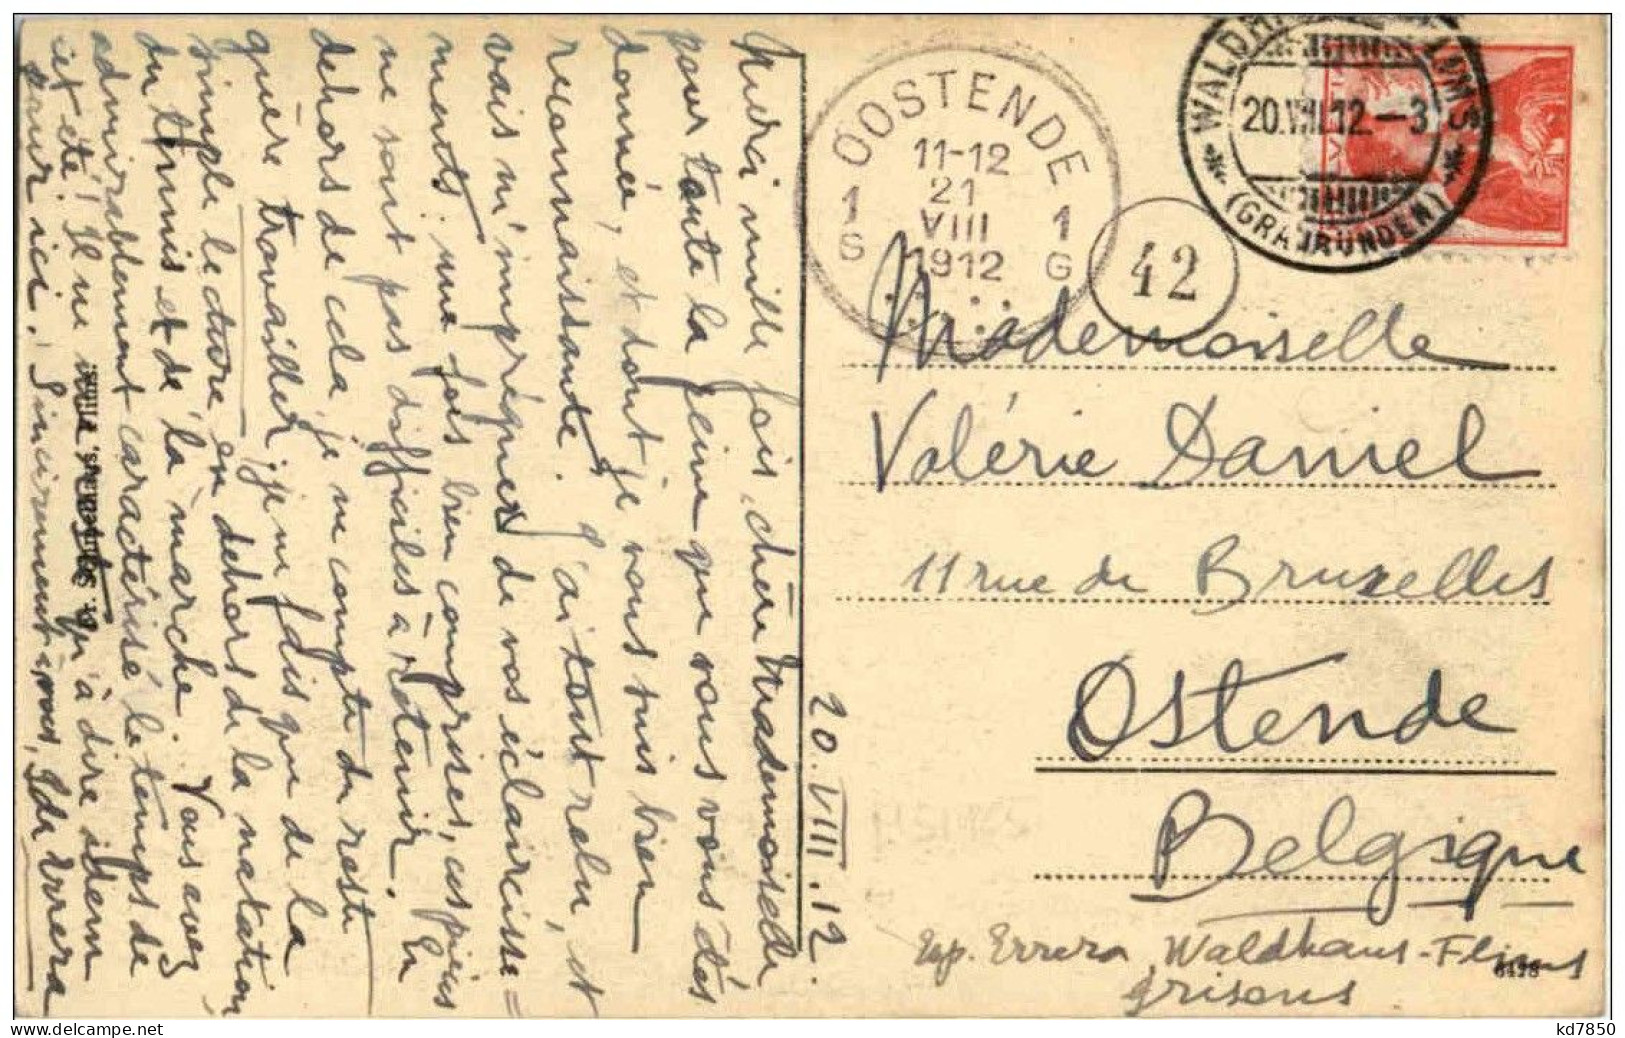 Merci mille fois, chère Mademoiselle
pour toute la peine que vous vous êtes
donnée, et dont je vous suis bien
reconnaissante. J'ai tout relu, et
vais m'imprégner de vos éclaircisse=
ments: une fois bien comprises, ces pièces
ne sont pas difficiles à retenir. En
dehors de cela, je me compte du reste
guère travailler, je ne fais que de la
simple lecture, en dehors de la natation,
du tennis et de la marche. Vous avez
admirablement caractérisé le temps de
cet été! Il ne qu'à dire idem
pour ici. Sincèrement à vous, Errera
20.VIII.12.
OOSTENDE
11-12
21
VIII
1912
1 S
1 G
42
WALDH FLIMS
20.VIII.12.-3
(GRAUBÜNDEN)
Mademoiselle
Valérie Daniel
11 rue de Bruxelles
Ostende
Belgique
Exp. Errera, Waldhaus-Flims
Grisons
kd7850